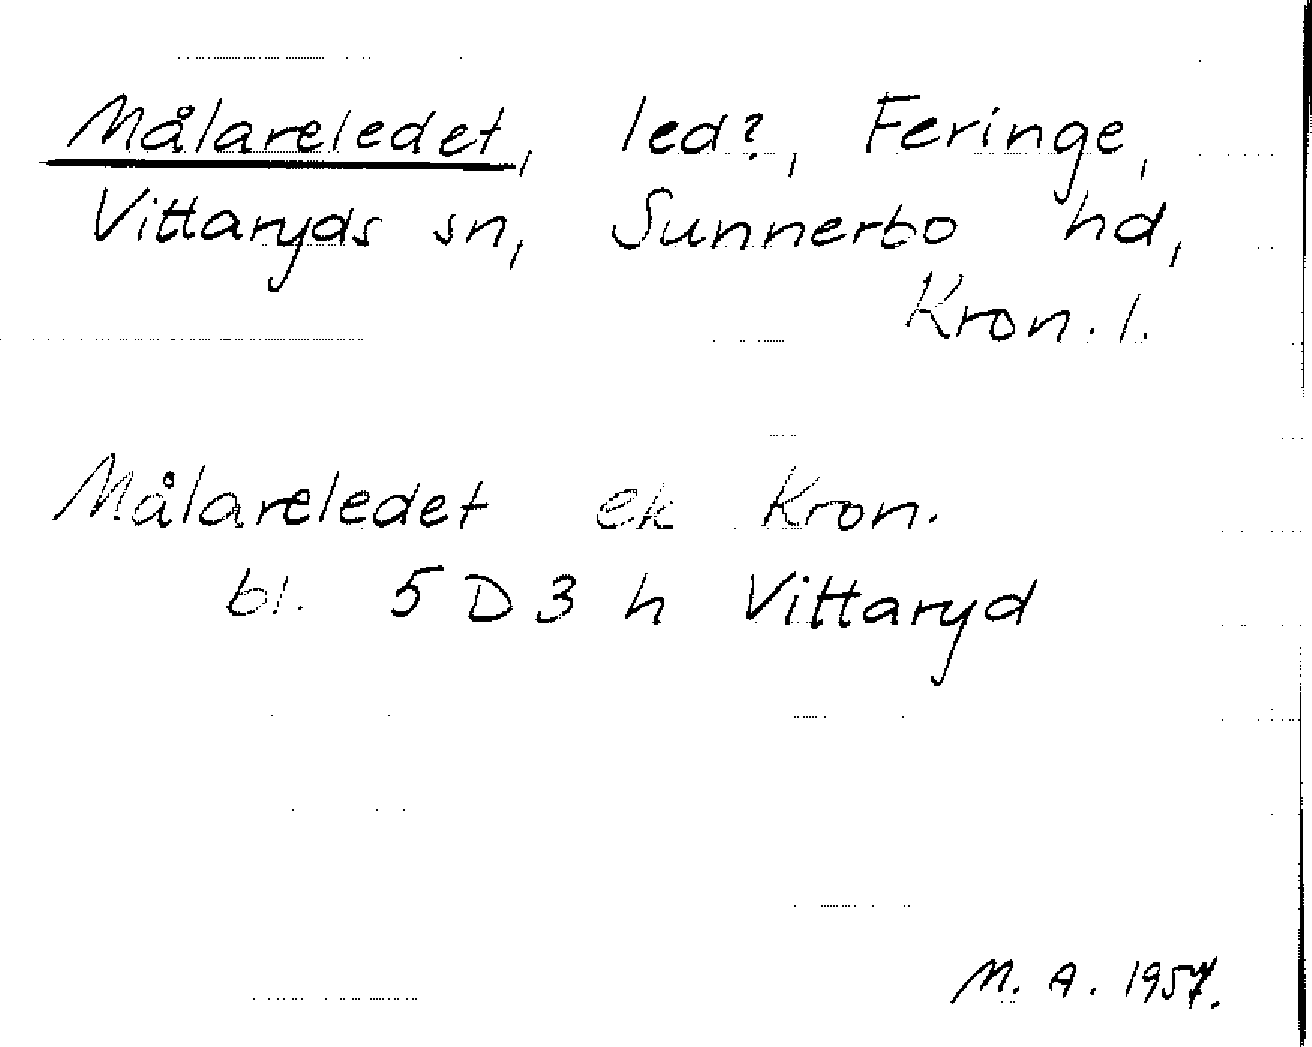 Målareledet, led?, Feringe,
Vittaryds sn, Sunnerbo hd,
Kron. l.
Målareledet ek Kron.
bl. 5 D 3 h Vittaryd
M. A. 1957.